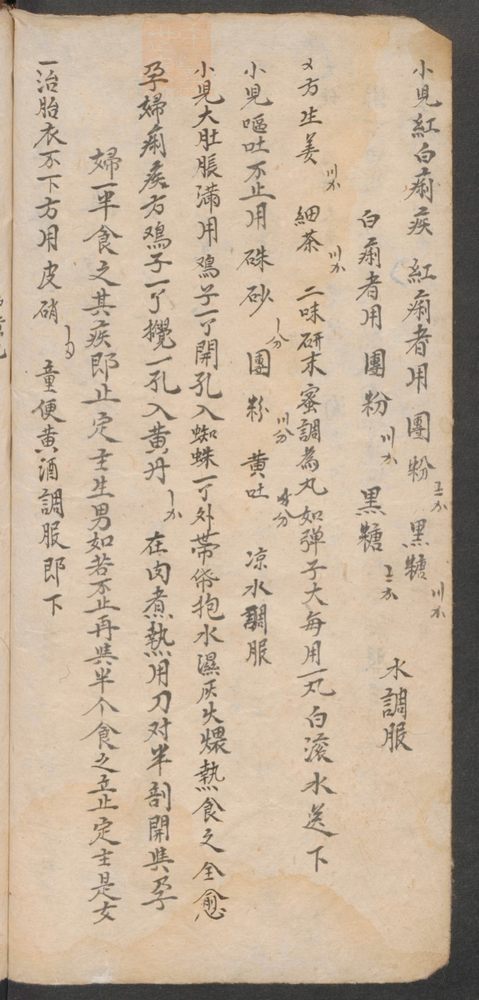 小児紅白痢疾 紅痢者用 團粉 黒糖 水調服
白痢者用 團粉 黒糖
又方生姜 細茶 二味研末蜜調為丸如弾子大每用一丸白滚水送下
小児嘔吐不止用 硃砂 團粉 黄吐 凉水調服
小児大肚脹滿用鳮子一丁開孔入蜘蛛一丁外帯俗抱水濕灰火煨熱食之全愈
孕婦痢疾方鳮子一丁攪一孔入黄丹 在肉煮熱用刀对半剖開與孕
婦一半食之其疾即止定主生男如若不止再與半个食之立止定主是女
一治胎衣不下方用皮硝 童便黄酒調服即下